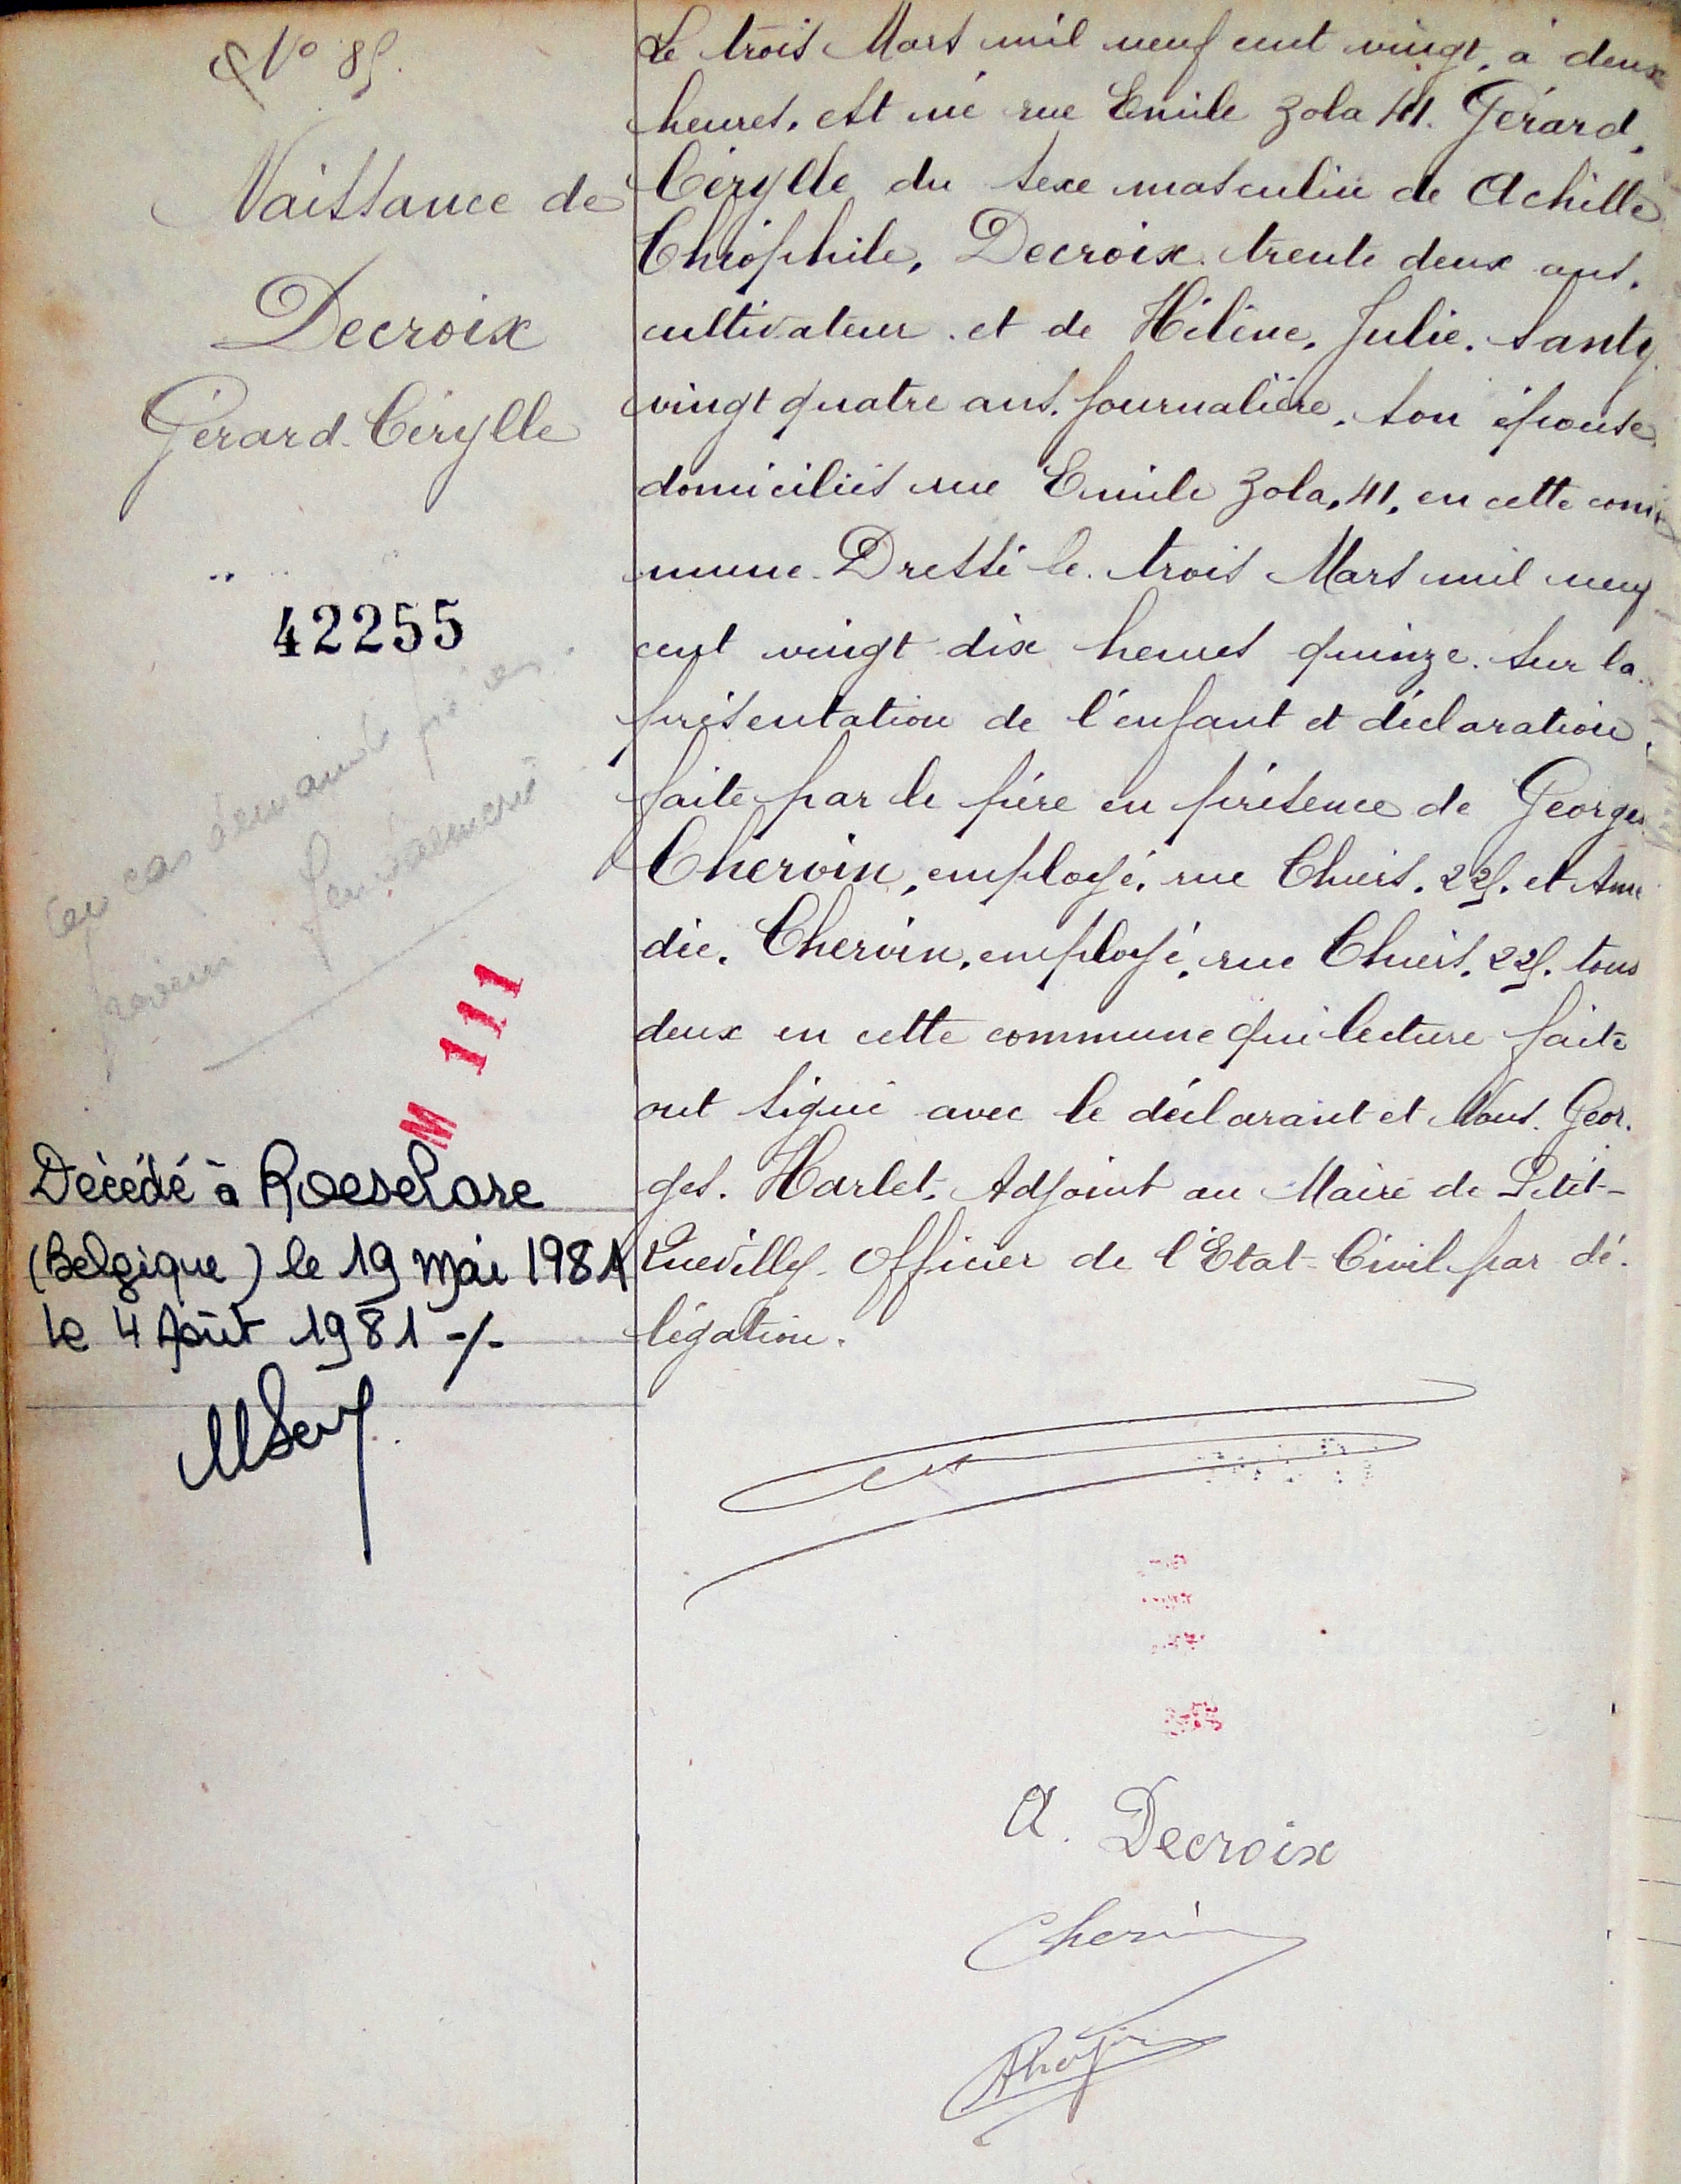 N° 85.
Naissance de
Decroix
Gérard Cérylle
42255
en cas demande
prévenir
111
M
Décédé à Roeselare
(Belgique) le 19 Mai 1981
le 4 Août 1981 -/-
Le trois Mars mil neuf cent vingt, à deux
heures, est né rue Emile Zola 41. Gérard,
Cérylle du sexe masculin de Achille
Théophile, Decroix trente deux ans,
cultivateur et de Hélène, Julie, Santy
vingt quatre ans, journalière, son épouse,
domiciliés rue Emile Zola, 41, en cette com
mune. Dressé le trois Mars mil neuf
cent vingt dix heures quinze. sur la
présentation de l'enfant et déclaration
faite par le père en présence de Georges
Chervin, employé, rue Thiers, 225, et Amé
dée, Chervin, employé, rue Thiers, 225, tous
deux en cette commune qui lecture faite
ont signé avec le déclarant et Nous, Geor-
ges. Harlet, Adjoint au Maire de Petit-
Quevilly Officier de l'Etat-Civil par dé-
légation.
A. Decroix
Chervin